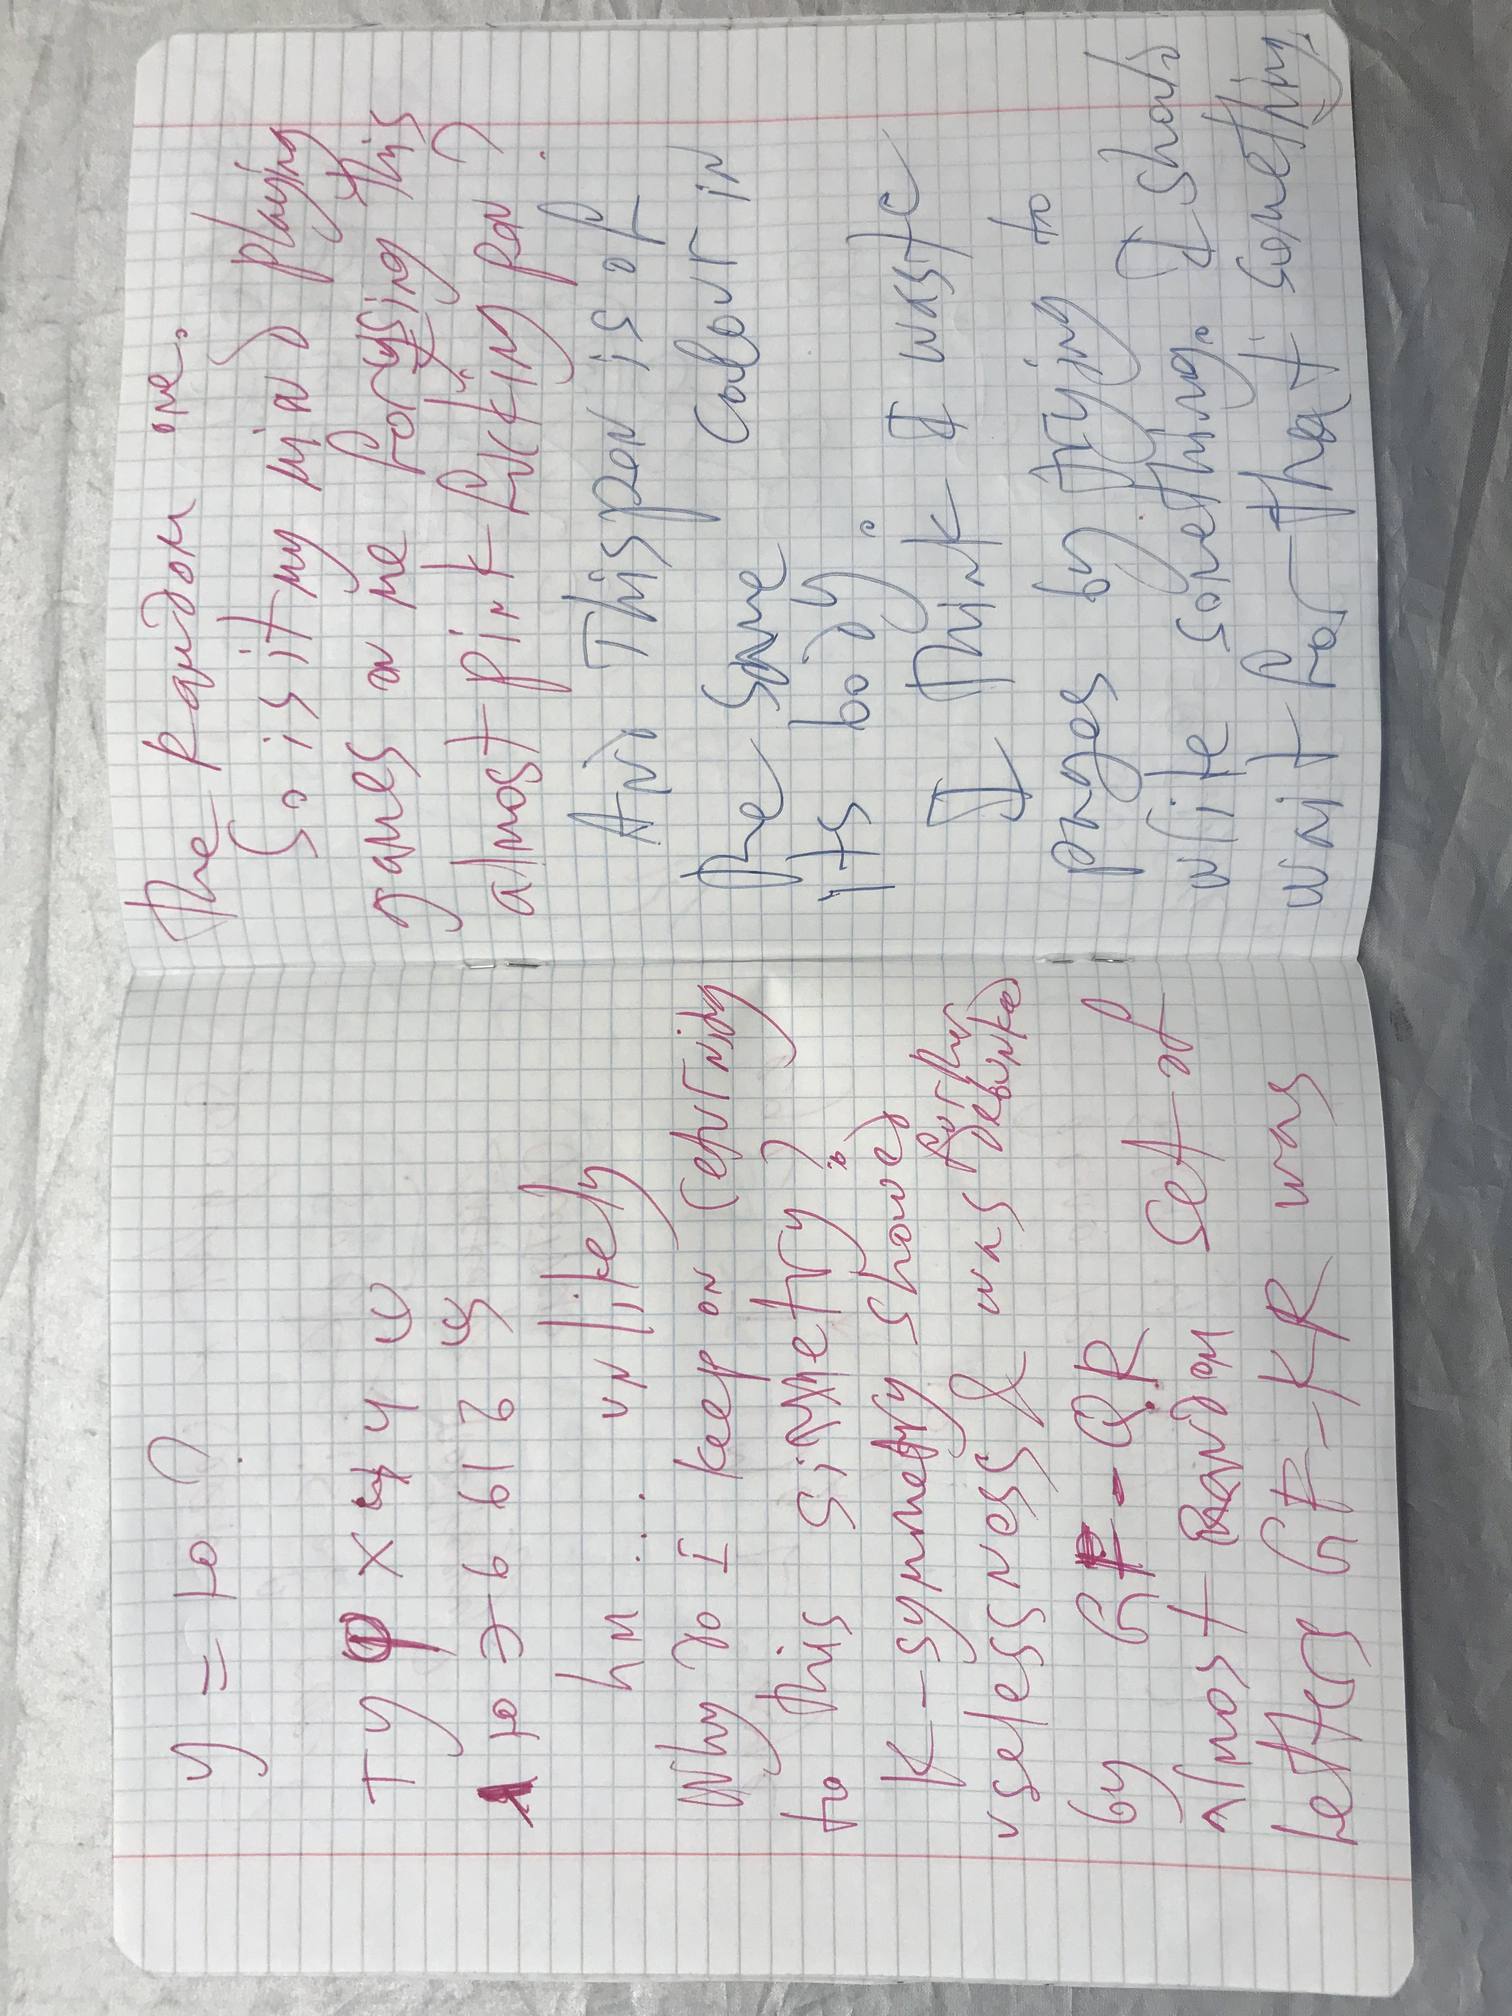 у = ю ?
т у ф х ц ч ш
ю э ь ы ъ щ
hm ... unlikely
Why do I keep on returning
to this simmetry?
K-symmetry showed
uselessness & was further debunked
by GF-QR
Almost random set of
letters GF-KR was
the random one.
So is it my mind playing
games on me for using this
almost pink fucking pan?
And this pan is of
the same colour in
its body.
I think I waste
pages by trying to
write something. I should
wait for that something